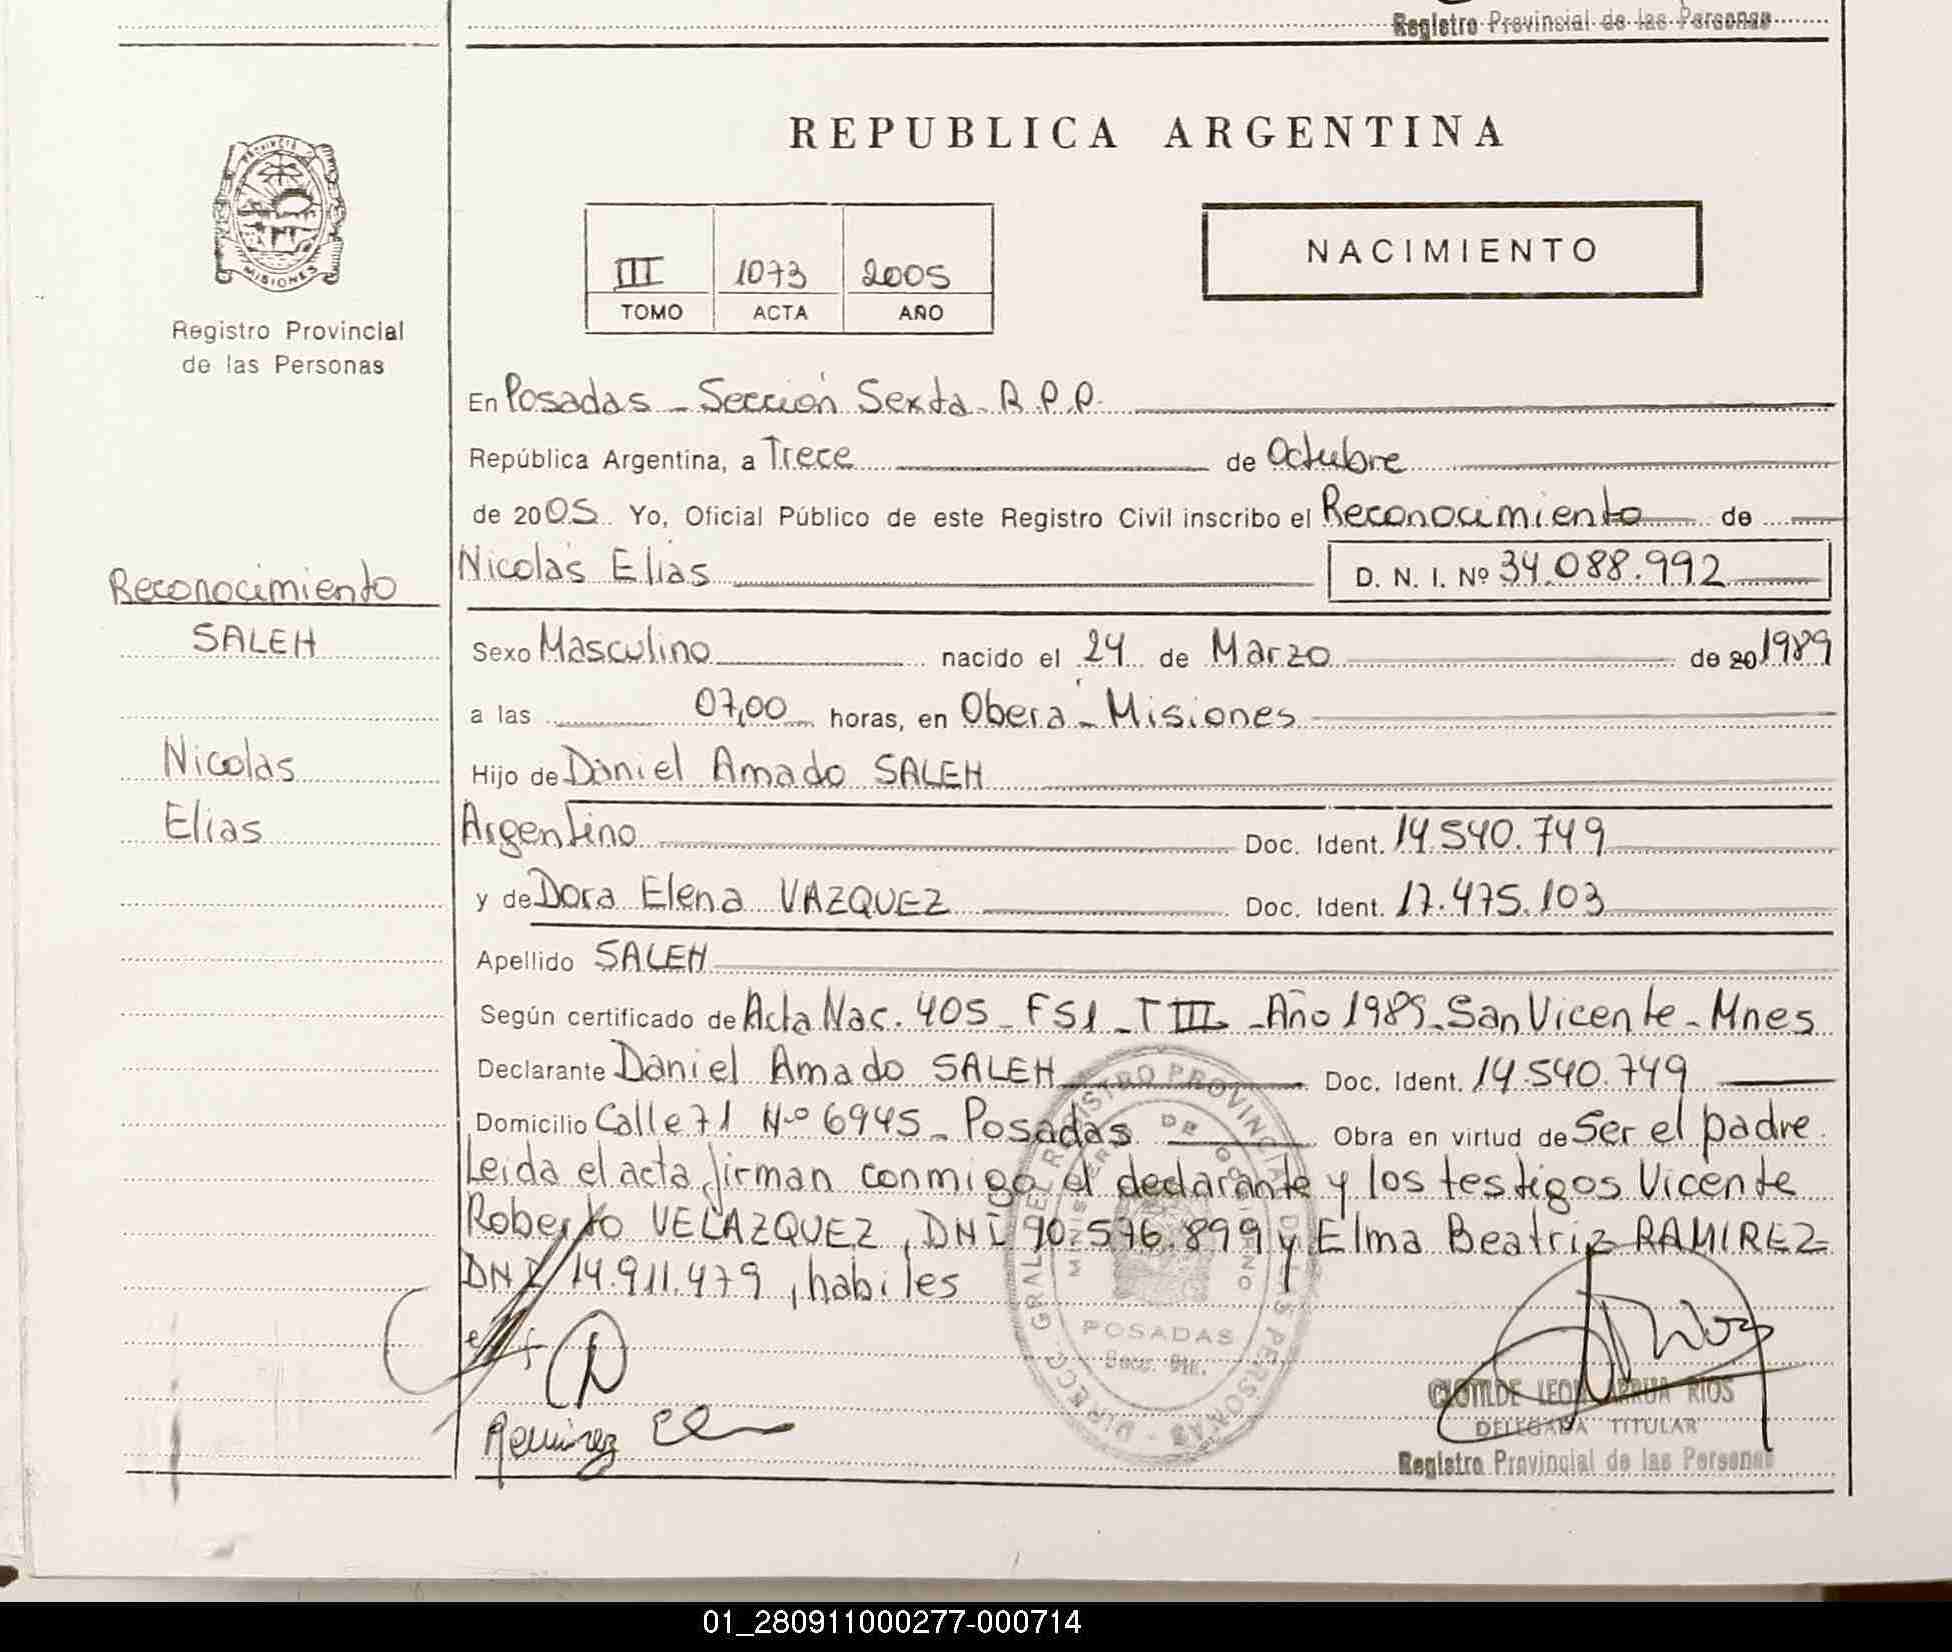 Registro Provincial de las Personas
REPUBLICA ARGENTINA
PROVINCIA
MISIONES
III 1073 2005
TOMO ACTA AÑO
NACIMIENTO
Registro Provincial
de las Personas
En Posadas - Sección Sexta - R.P.P.
República Argentina, a Trece de Octubre
de 2005. Yo, Oficial Público de este Registro Civil inscribo el Reconocimiento de
Nicolás Elías D. N. I. Nº 34.088.992
Reconocimiento
SALEH
Nicolas
Elias
Sexo Masculino nacido el 24 de Marzo de 20 1989
a las 07,00 horas, en Oberá - Misiones
Hijo de Daniel Amado SALEH
Argentino Doc. Ident. 14.540.749
y de Dora Elena VAZQUEZ Doc. Ident. 17.475.103
Apellido SALEH
Según certificado de Acta Nac. 405 - F51 - T III - Año 1989 - San Vicente - Mnes
Declarante Daniel Amado SALEH Doc. Ident. 14.540.749
Domicilio Calle 71 Nº 6945 - Posadas Obra en virtud de Ser el padre
Leida el acta firman conmigo el declarante y los testigos Vicente
Roberto VELAZQUEZ, DNI 90.576.899 y Elma Beatriz RAMIREZ
DNI 14.911.479, habiles
DIRECC. GRAL. DEL REGISTRO PROVINCIAL DE LAS PERSONAS
MINISTERIO DE GOBIERNO
POSADAS
Ramirez
CLOTILDE LEONA ARRUA RIOS
DELEGADA TITULAR
Registro Provincial de las Personas
01_280911000277-000714